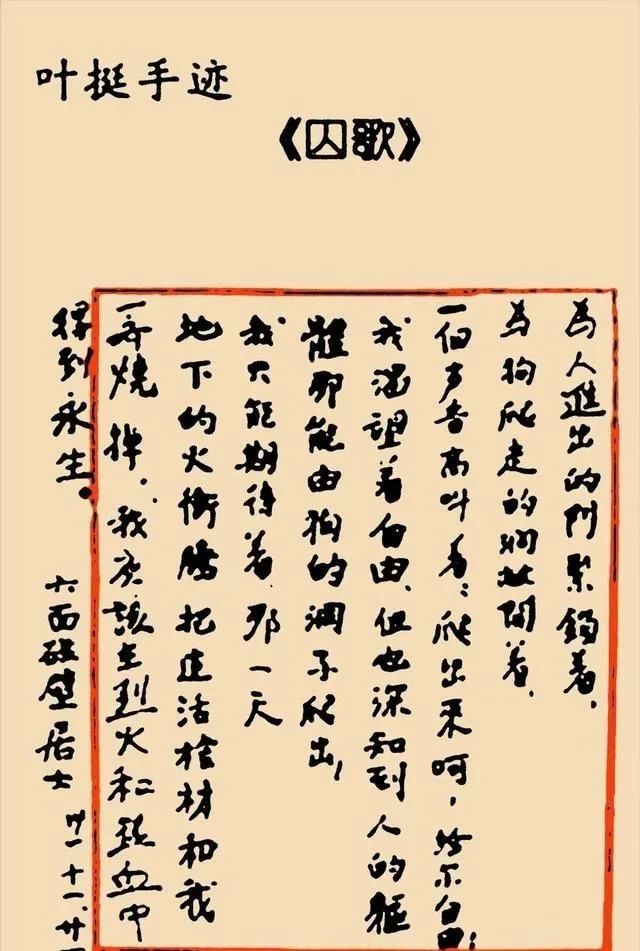 叶挺手迹
《囚歌》
為人進出的門緊鎖着、
為狗爬走的洞敞開着、
一個声音高叫着：爬出来呵，給尔自由；
我渴望着自由、但也深知到人的軀
體那能由狗的洞子爬出！
我只能期待着、那一天
地下的火衝騰把這活棺材和我
一齐燒掉、我应該在烈火和熱血中
得到永生。
六面碰壁居士
卅一、十一、廿